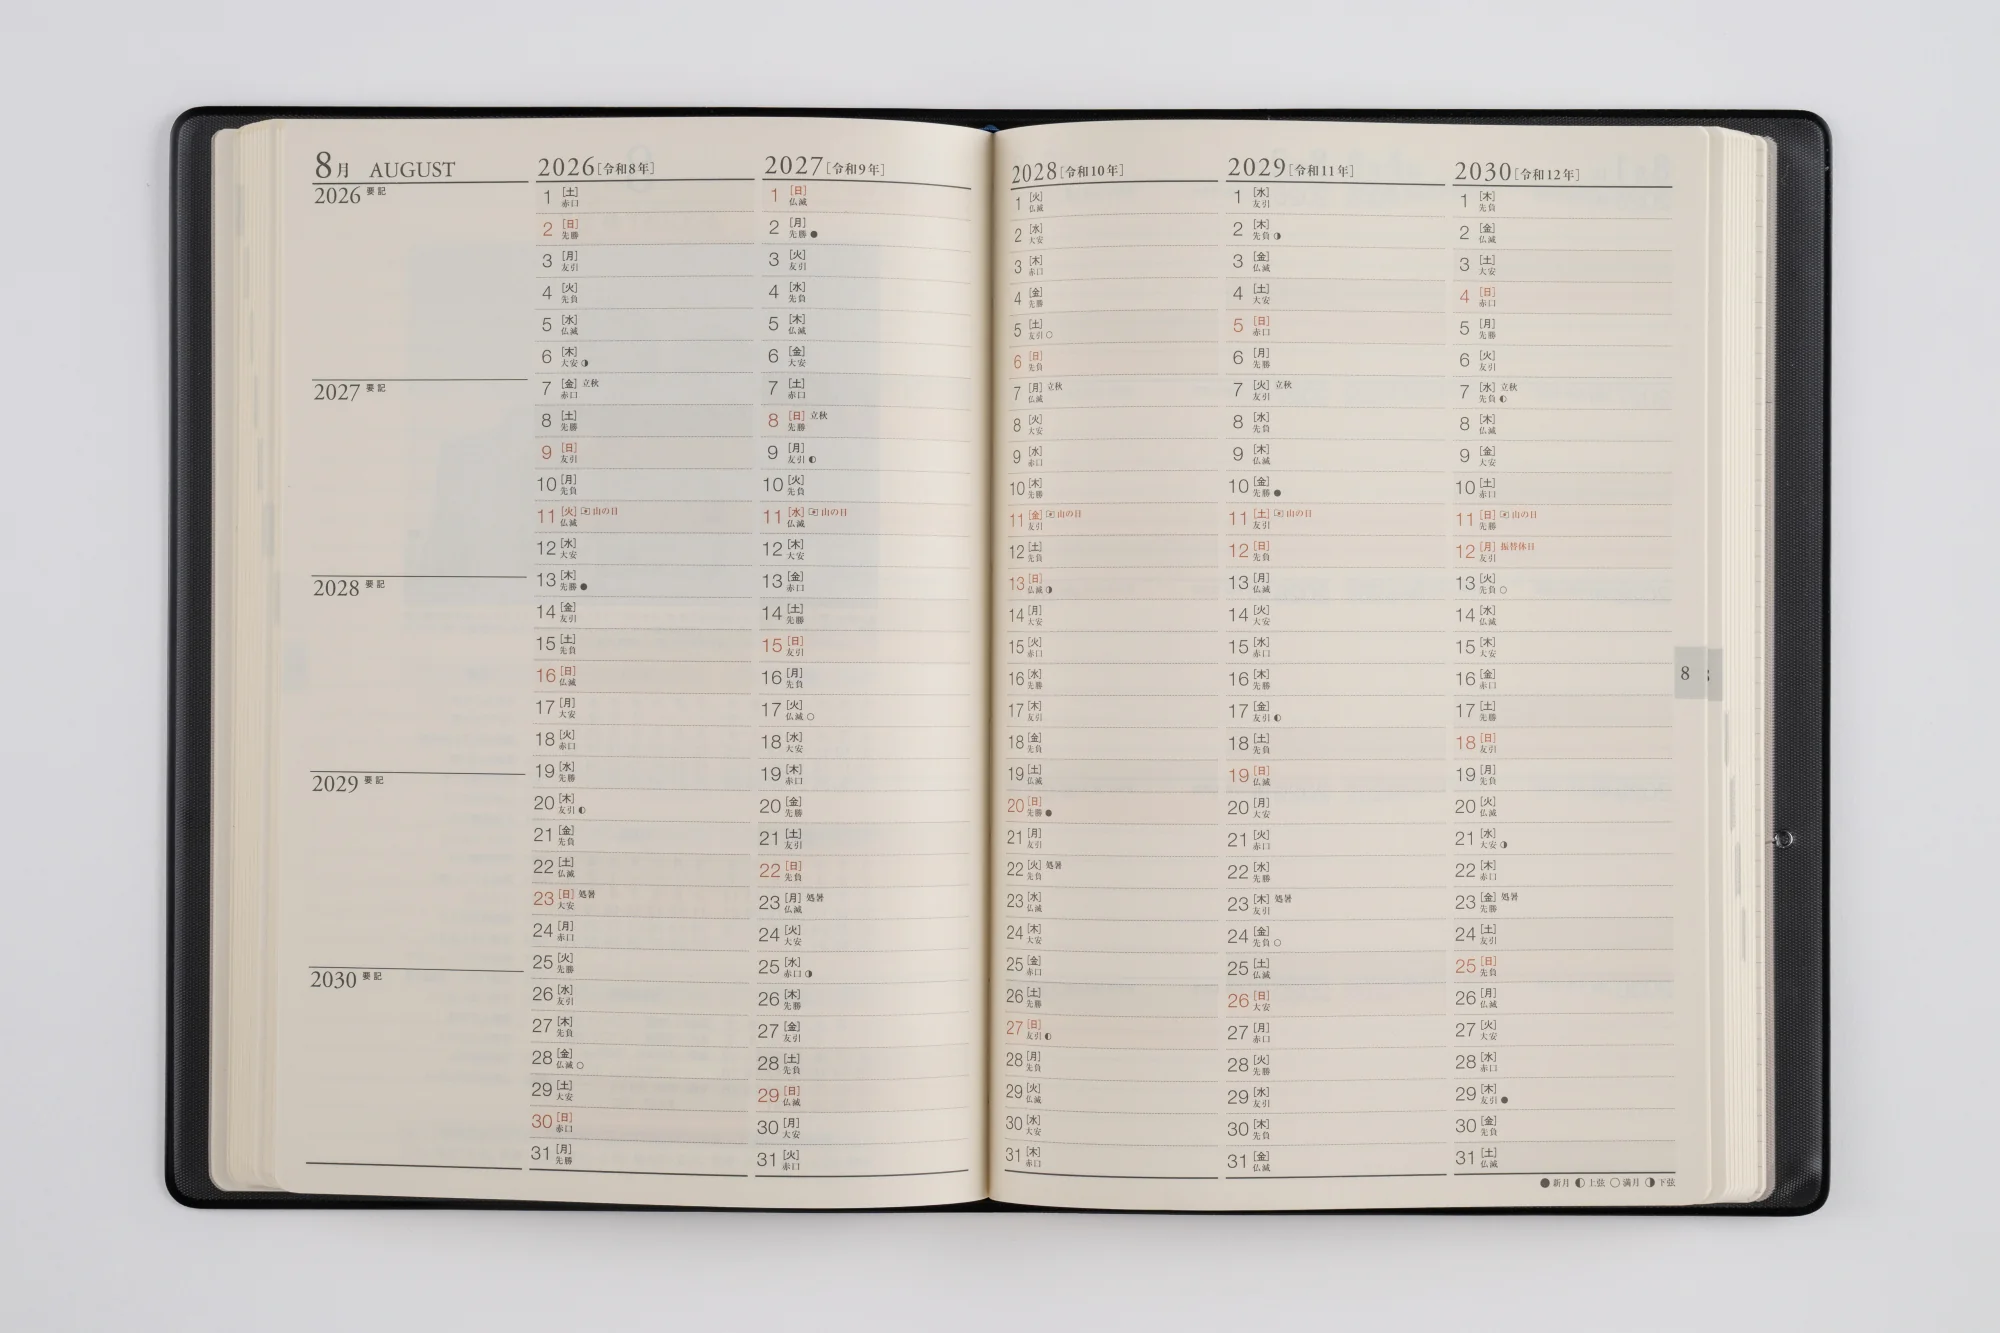 8月 AUGUST
2026 要記
2027 要記
2028 要記
2029 要記
2030 要記
2026[令和8年]
1 [土] 赤口
2 [日] 先勝
3 [月] 友引
4 [火] 先負
5 [水] 仏滅
6 [木] 大安 ◑
7 [金] 立秋 赤口
8 [土] 先勝
9 [日] 友引
10 [月] 先負
11 [火] 山の日 仏滅
12 [水] 大安
13 [木] 先勝 ●
14 [金] 友引
15 [土] 先負
16 [日] 仏滅
17 [月] 大安
18 [火] 赤口
19 [水] 先勝
20 [木] 友引 ◐
21 [金] 先負
22 [土] 仏滅
23 [日] 処暑 大安
24 [月] 赤口
25 [火] 先勝
26 [水] 友引
27 [木] 先負
28 [金] 仏滅 ○
29 [土] 大安
30 [日] 赤口
31 [月] 先勝
2027[令和9年]
1 [日] 仏滅
2 [月] 先勝 ●
3 [火] 友引
4 [水] 先負
5 [木] 仏滅
6 [金] 大安
7 [土] 赤口
8 [日] 立秋 先勝
9 [月] 友引 ◐
10 [火] 先負
11 [水] 山の日 仏滅
12 [木] 大安
13 [金] 赤口
14 [土] 先勝
15 [日] 友引
16 [月] 先負
17 [火] 仏滅 ○
18 [水] 大安
19 [木] 赤口
20 [金] 先勝
21 [土] 友引
22 [日] 先負
23 [月] 処暑 仏滅
24 [火] 大安
25 [水] 赤口 ◑
26 [木] 先勝
27 [金] 友引
28 [土] 先負
29 [日] 仏滅
30 [月] 大安
31 [火] 赤口
2028[令和10年]
1 [火] 仏滅
2 [水] 大安
3 [木] 赤口
4 [金] 先勝
5 [土] 友引 ○
6 [日] 先負
7 [月] 立秋 仏滅
8 [火] 大安
9 [水] 赤口
10 [木] 先勝
11 [金] 山の日 友引
12 [土] 先負
13 [日] 仏滅 ◑
14 [月] 大安
15 [火] 赤口
16 [水] 先勝
17 [木] 友引
18 [金] 先負
19 [土] 仏滅
20 [日] 先勝 ●
21 [月] 友引
22 [火] 処暑 先負
23 [水] 仏滅
24 [木] 大安
25 [金] 赤口
26 [土] 先勝
27 [日] 友引 ◐
28 [月] 先負
29 [火] 仏滅
30 [水] 大安
31 [木] 赤口
2029[令和11年]
1 [水] 友引
2 [木] 先負 ◑
3 [金] 仏滅
4 [土] 大安
5 [日] 赤口
6 [月] 先勝
7 [火] 立秋 友引
8 [水] 先負
9 [木] 仏滅
10 [金] 先勝 ●
11 [土] 山の日 友引
12 [日] 先負
13 [月] 仏滅
14 [火] 大安
15 [水] 赤口
16 [木] 先勝
17 [金] 友引 ◐
18 [土] 先負
19 [日] 仏滅
20 [月] 大安
21 [火] 赤口
22 [水] 先勝
23 [木] 処暑 友引
24 [金] 先負 ○
25 [土] 仏滅
26 [日] 大安
27 [月] 赤口
28 [火] 先勝
29 [水] 友引
30 [木] 先負
31 [金] 仏滅
2030[令和12年]
1 [木] 先負
2 [金] 仏滅
3 [土] 大安
4 [日] 赤口
5 [月] 先勝
6 [火] 友引
7 [水] 立秋 先負 ◐
8 [木] 仏滅
9 [金] 大安
10 [土] 赤口
11 [日] 山の日 先勝
12 [月] 振替休日 友引
13 [火] 先負 ○
14 [水] 仏滅
15 [木] 大安
16 [金] 赤口
17 [土] 先勝
18 [日] 友引
19 [月] 先負
20 [火] 仏滅
21 [水] 大安 ◑
22 [木] 赤口
23 [金] 処暑 先勝
24 [土] 友引
25 [日] 先負
26 [月] 仏滅
27 [火] 大安
28 [水] 赤口
29 [木] 友引 ●
30 [金] 先負
31 [土] 仏滅
8
●新月 ◐上弦 ○満月 ◑下弦